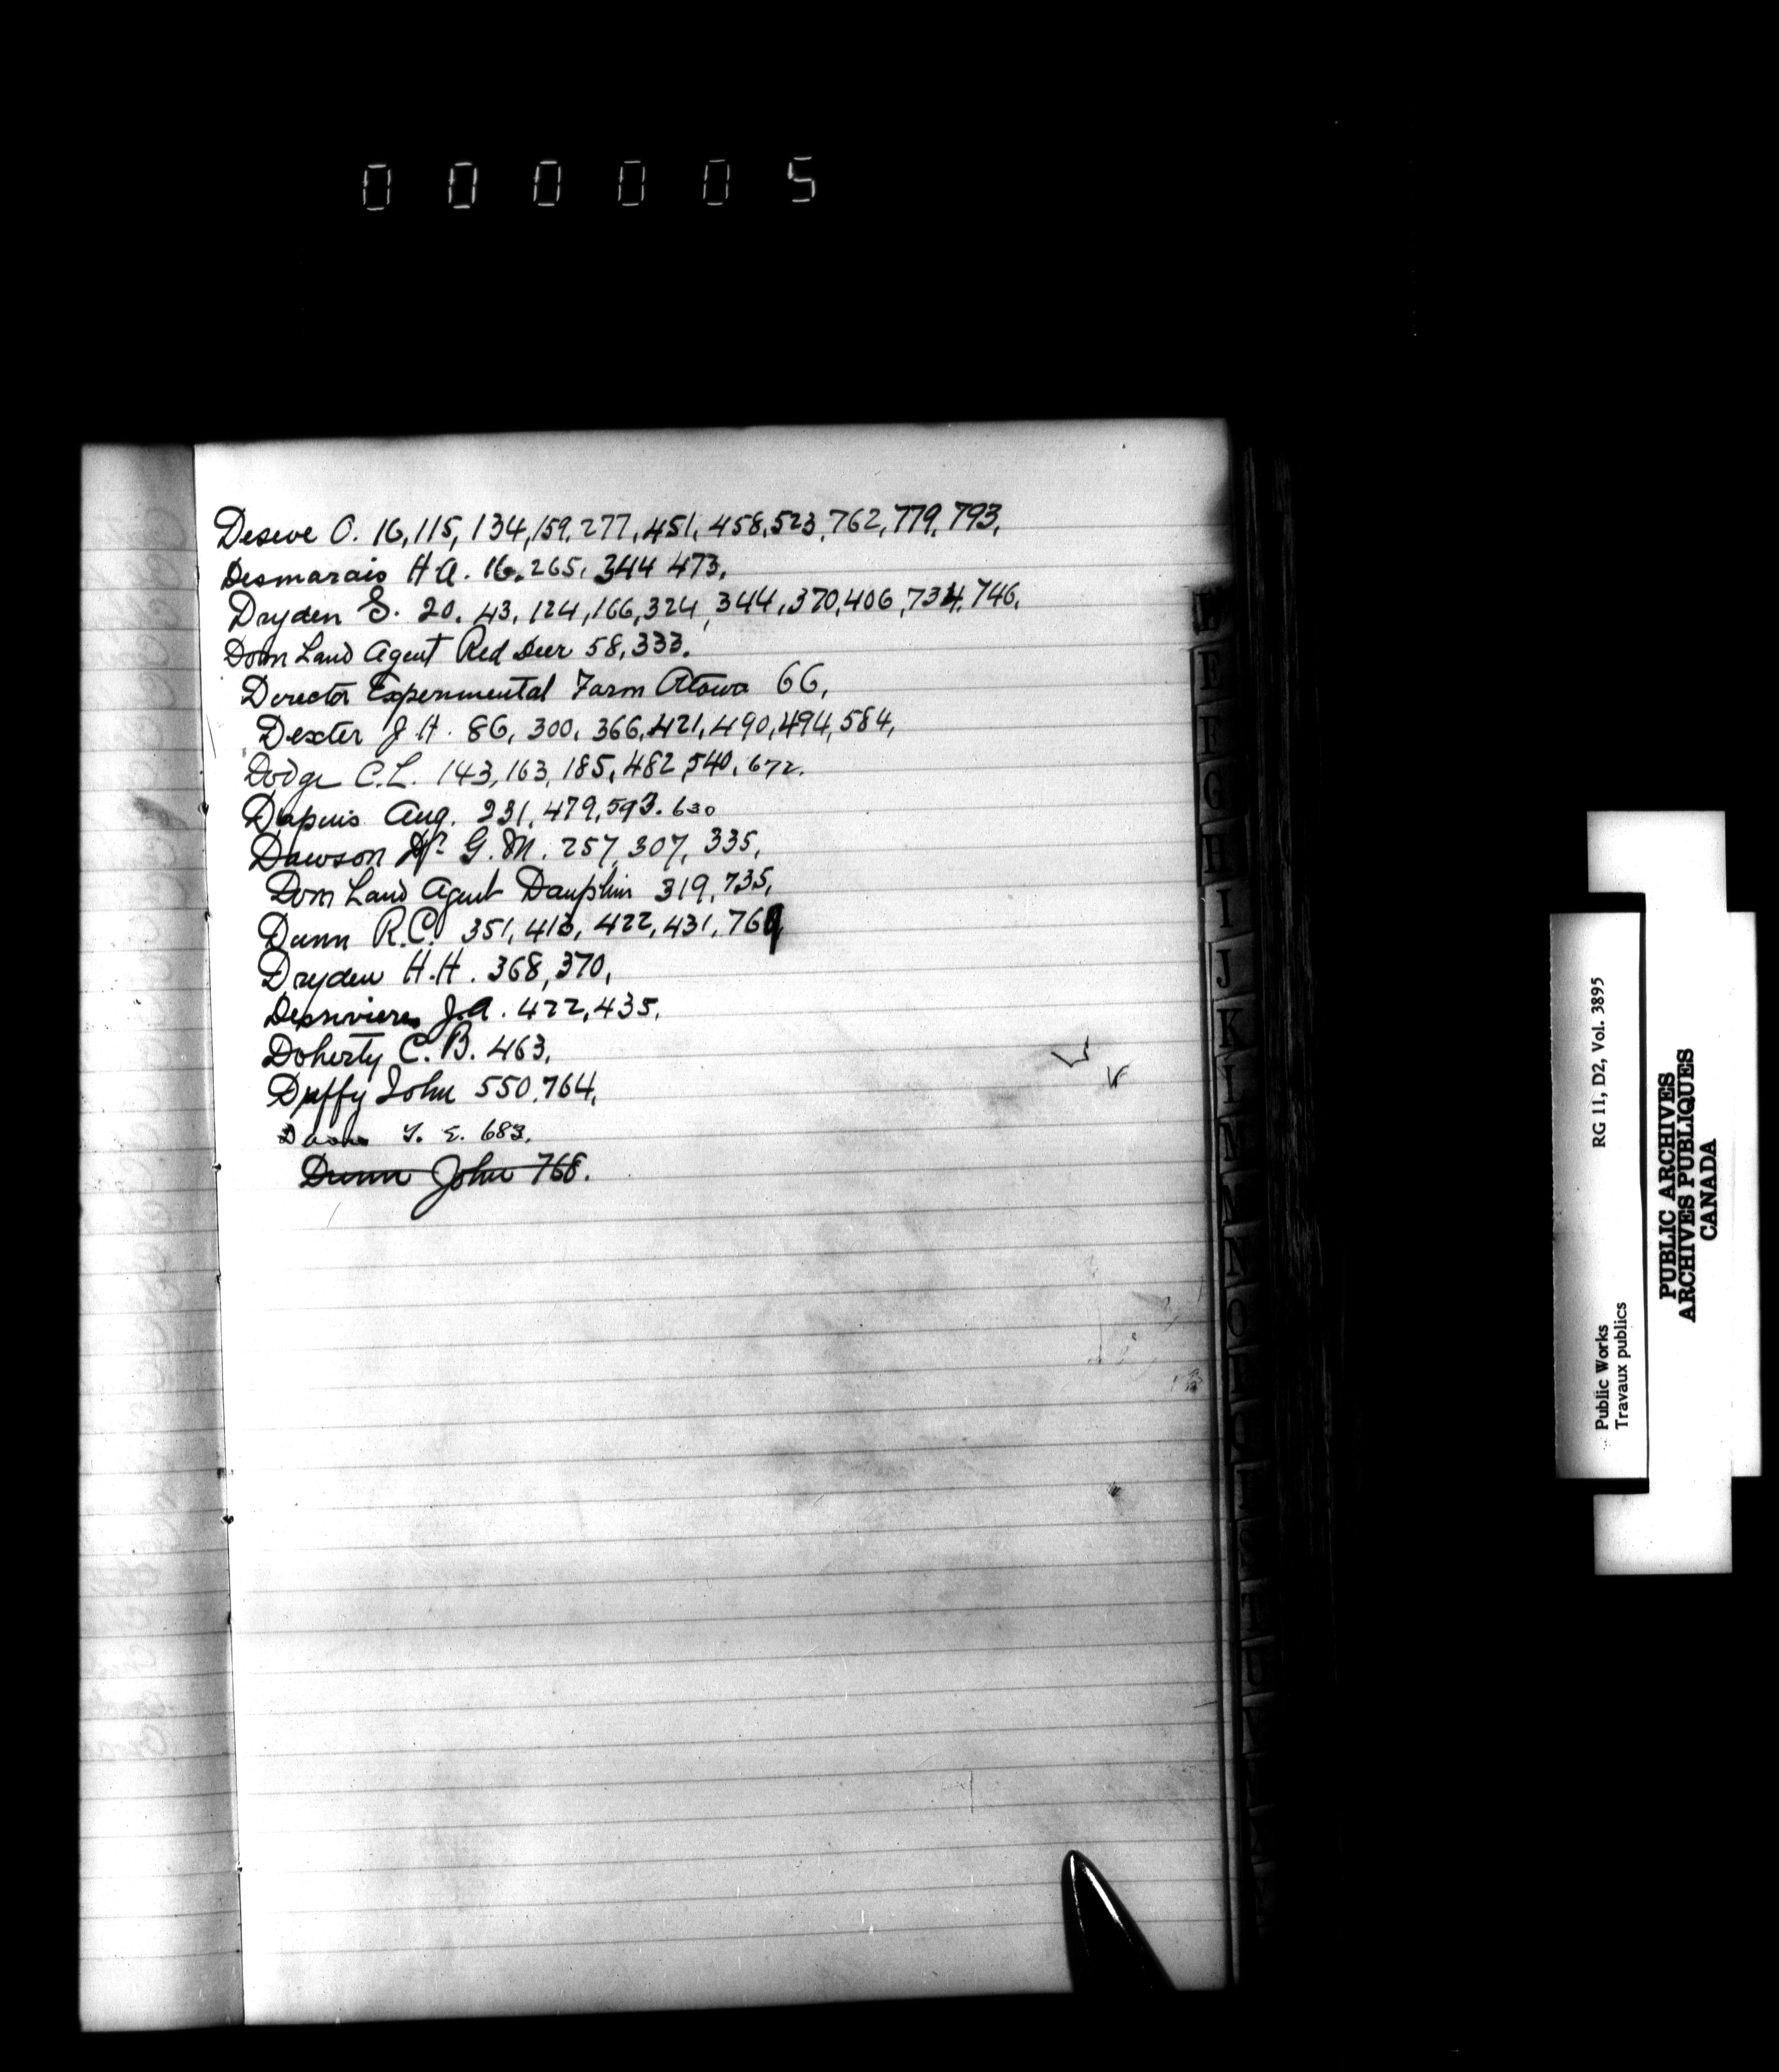 000005
Deseve O. 16, 115, 134, 159, 277, 451, 458, 523, 762, 779, 793,
Desmarais H A. 16. 265, 344 473,
Dryden S. 20, 43, 124, 166, 324, 344, 370, 406, 734, 746,
Dom Land Agent Red Deer 58, 333.
Director Experimental Farm Otawa 66,
Dexter J. H. 86, 300, 366, 421, 490, 494, 584,
Dodge C. L. 143, 163, 185, 482, 540, 672.
Dupuis Aug. 231, 479, 593. 630
Dawson Dr G. M. 257, 307, 335,
Dom Land Agent Dauphin 319, 735,
Dunn R. C. 351, 413, 422, 431, 769,
Dryden H. H. 368, 370,
Desrivieres J. A. 422, 435,
Doherty C. B. 463,
Duffy John 550, 764,
683.
Dunn John 768.
E
F
G
H
I
J
K
RG 11, D2, Vol. 3895
Public Works
Travaux publics
PUBLIC ARCHIVES
ARCHIVES PUBLIQUES
CANADA